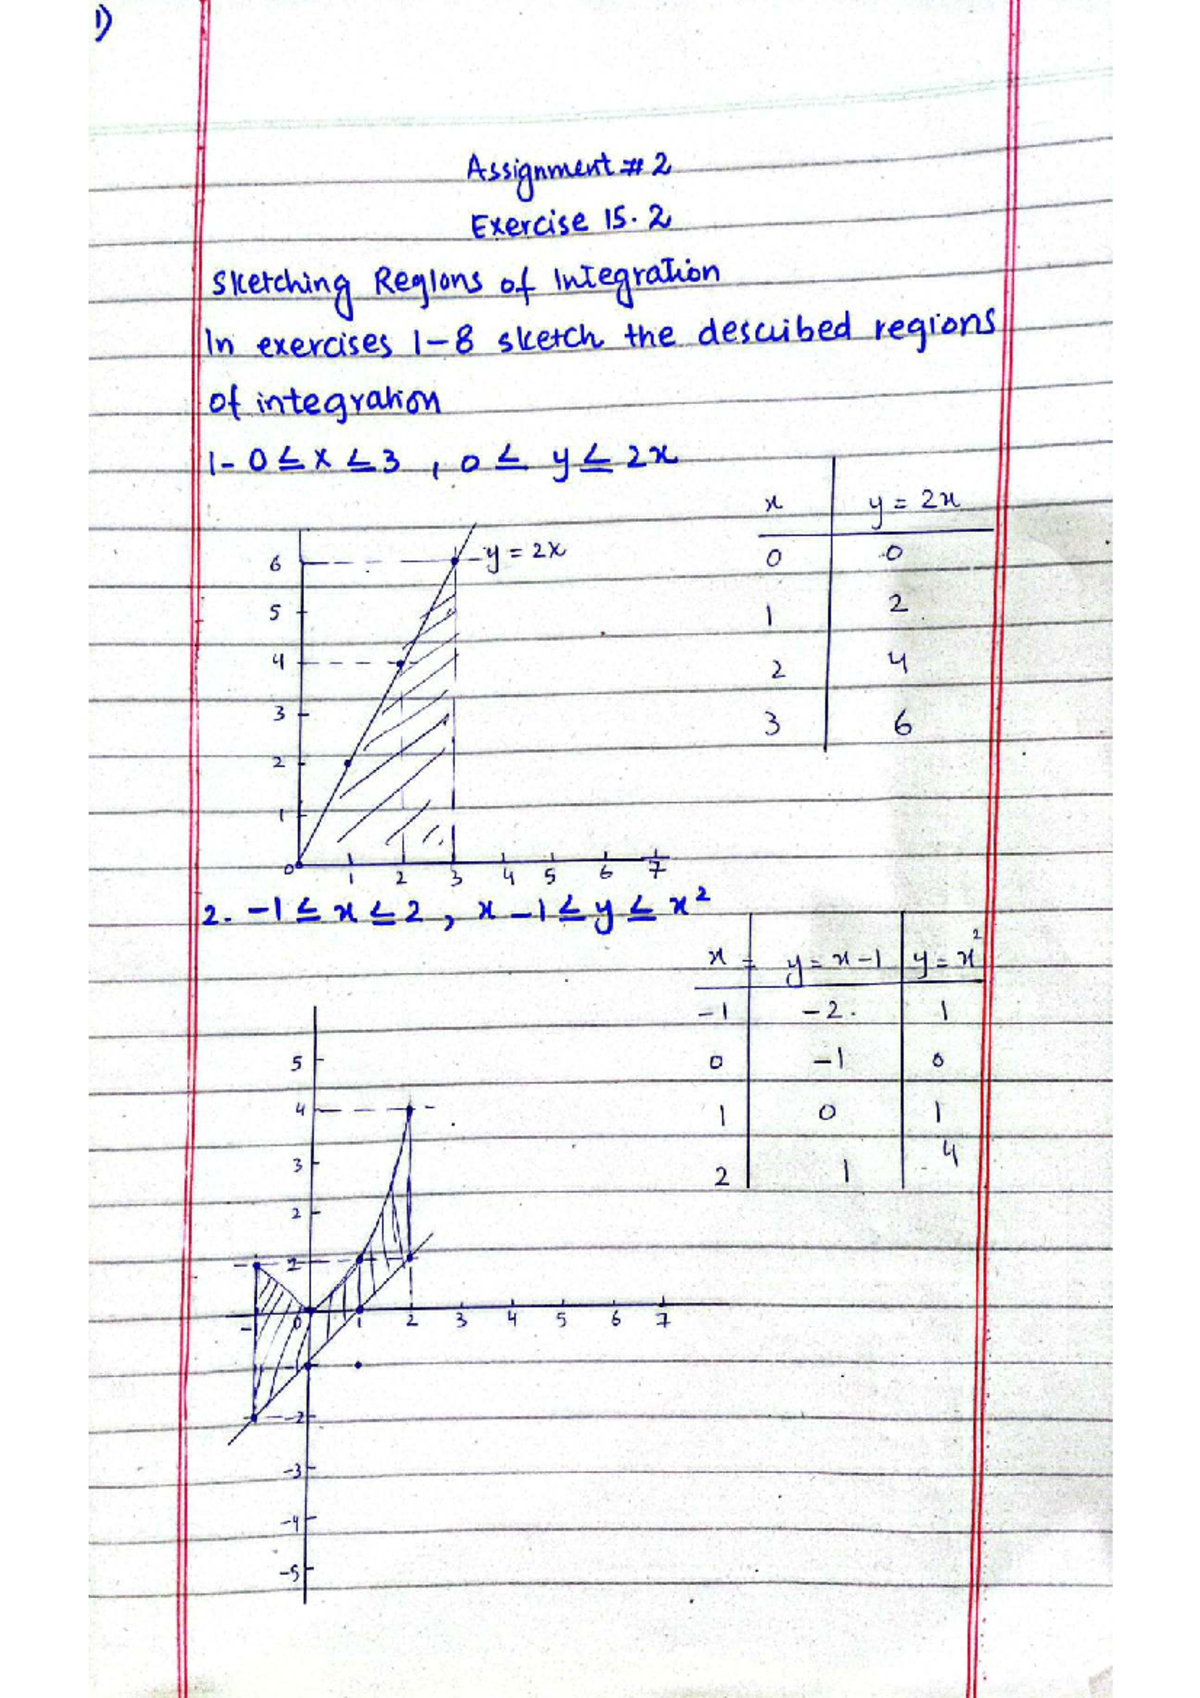 1)
Assignment # 2
Exercise 15.2
Sketching Regions of Integration
In exercises 1-8 sketch the described regions
of integration
1- 0 ≤ x ≤ 3 , 0 ≤ y ≤ 2x
x y = 2x
0 0
1 2
2 4
3 6
y = 2x
6
5
4
3
2
1
0 1 2 3 4 5 6 7
2. -1 ≤ x ≤ 2 , x -1 ≤ y ≤ x²
x = y = x-1 y = x²
-1 -2. 1
0 -1 0
1 0 1
2 1 4
5
4
3
2
0 1 2 3 4 5 6 7
-2
-3
-4
-5